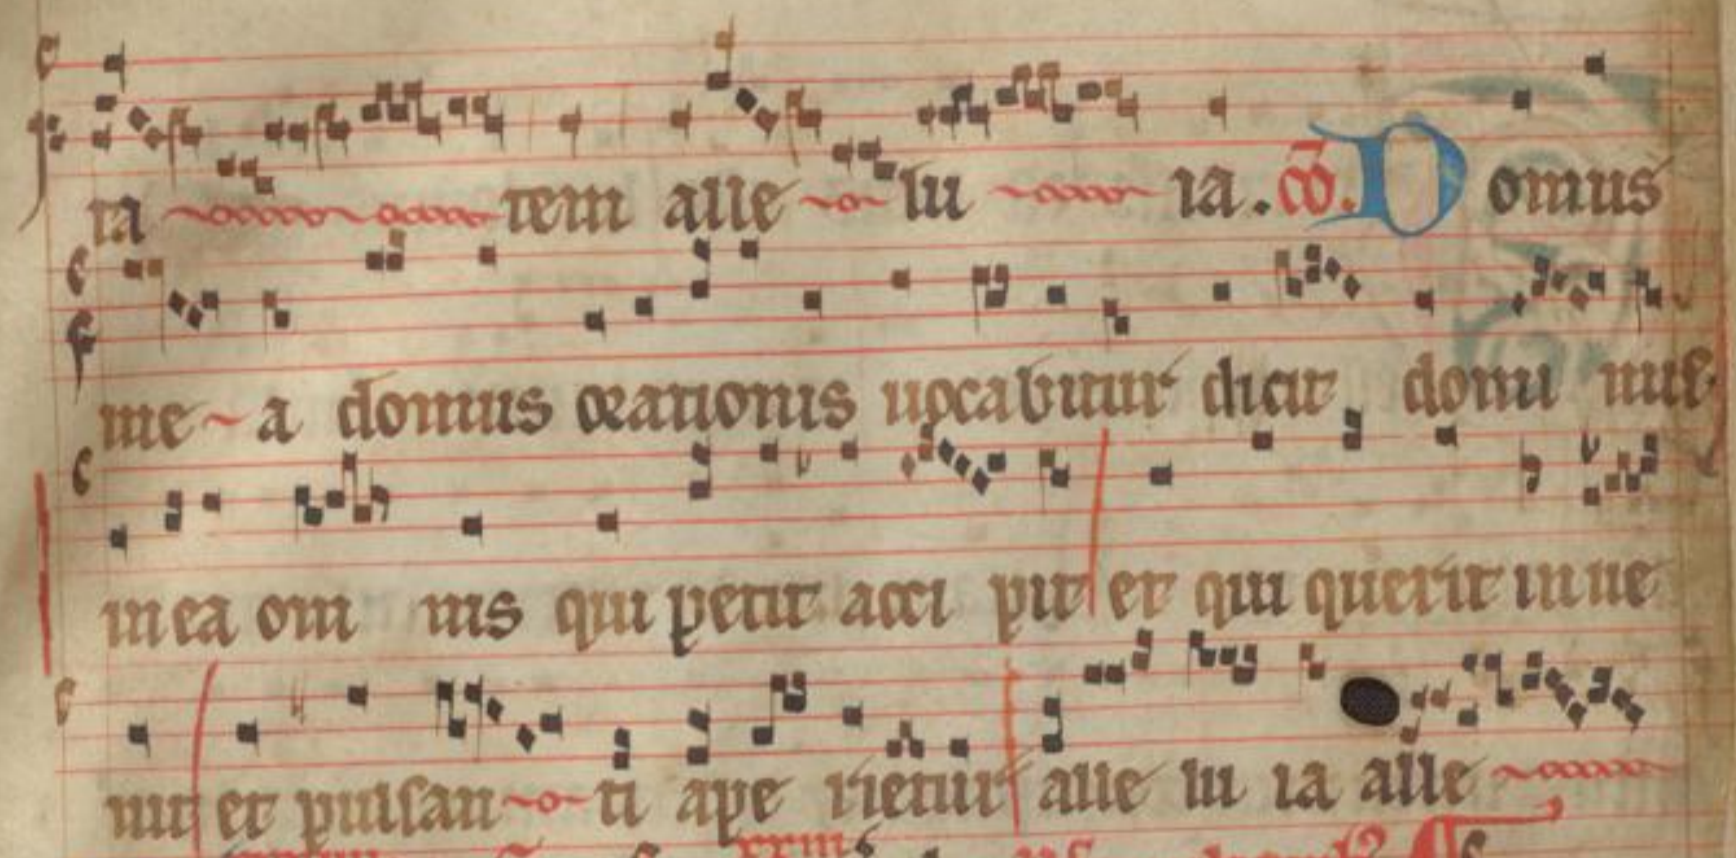 ta tem alle lu ia. co. Domus
me a domus orationis uocabitur dicit domi nus
in ea om nis qui petit acci pit et qui querit inue
nit et pulsan ti ape rietur alle lu ia alle
xxiii